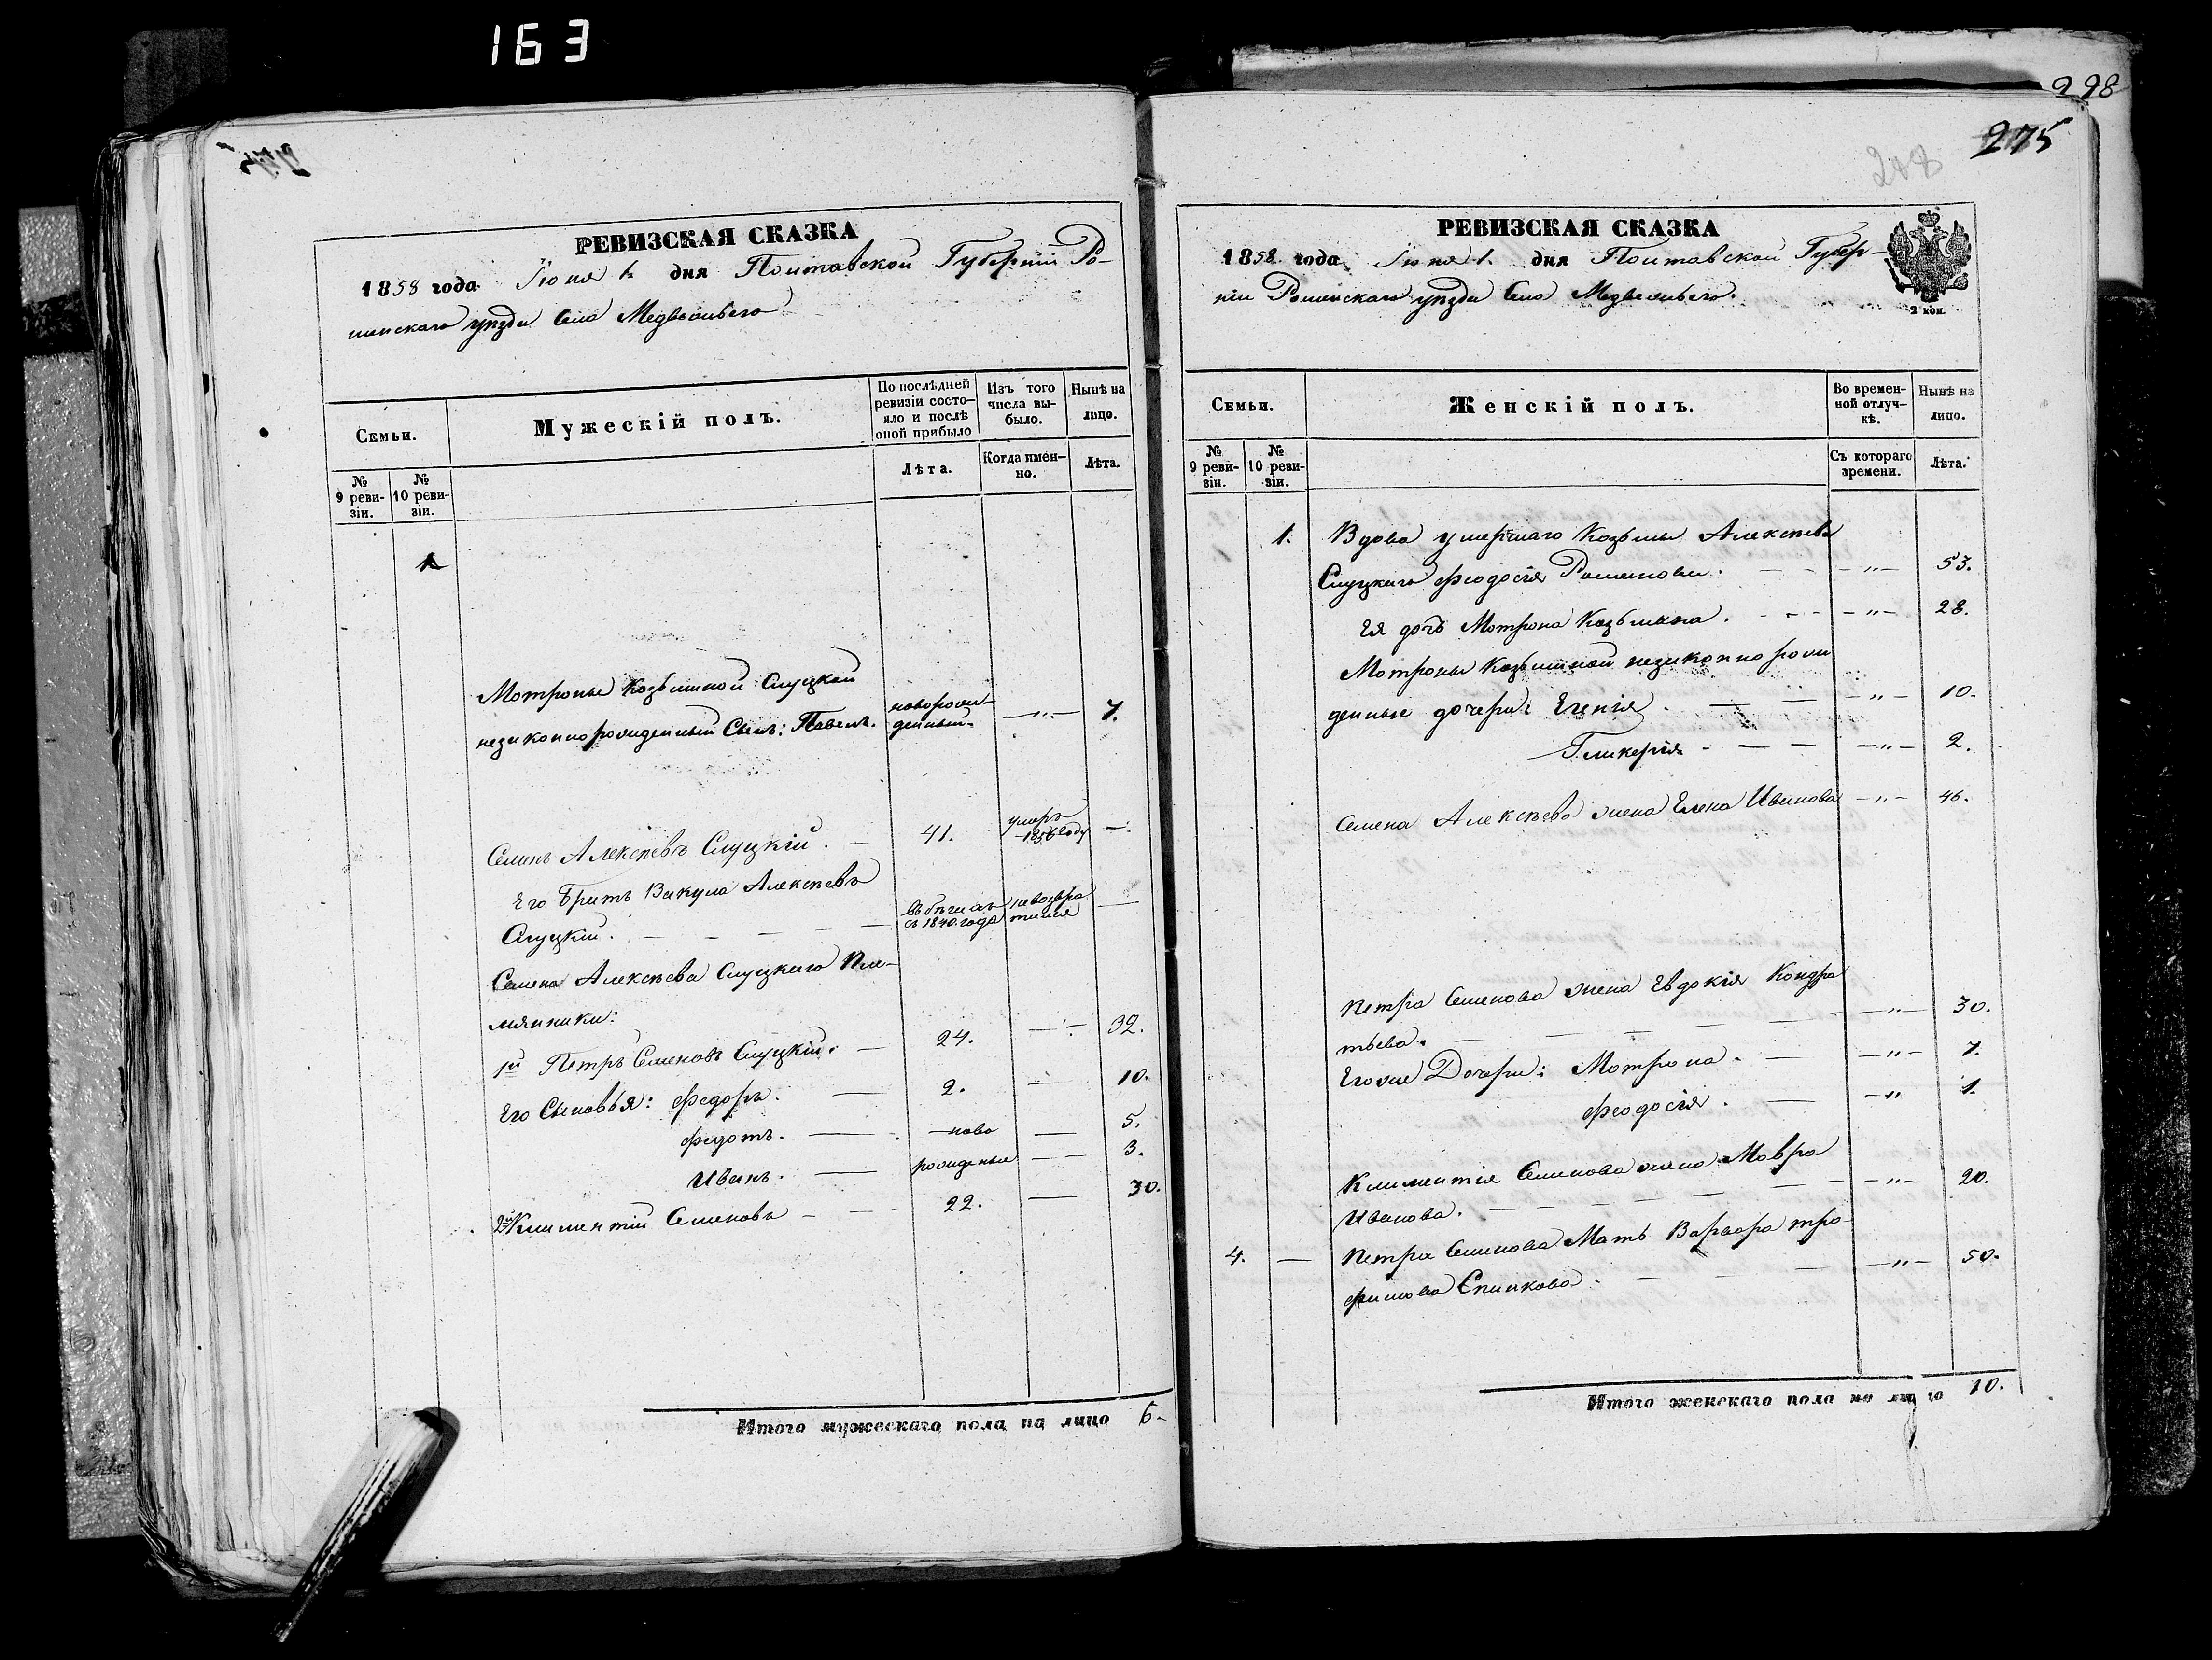 163
298
275
РЕВИЗСКАЯ СКАЗКА
1858 года Июня 1. дня Полтавской Губерніи Ро-
менскаго уѣзда Села Медвежьего
Семьи.
Мужескій полъ.
По послѣдней ревизіи состо-
яло и послѣ оной прибыло
Изъ того числа вы-
было.
Нынѣ на лицо.
№ 9 реви-
зіи.
№ 10 реви-
зіи.
Лѣта.
Когда имен-
но.
Лѣта.
1
Мотроны Козьминой Слуцкой
незаконнорожденный Сынъ: Павелъ. новорож-
денный — „ — 7.
Семенъ Алексѣевъ Слуцкій. — 41. умеръ 1856 году —
Его Братъ Вакула Алексѣевъ
Слуцкій. — въ бѣгахъ съ 1840. года невозвра
тился —
Семена Алексѣева Слуцкаго Пле-
мянники:
1й Петръ Семеновъ Слуцкій. — 24. — 32.
Его Сыновья: Федоръ. — 2. — 10.
Федотъ. — ново — 5.
Иванъ. — рожденые — 3.
2й Климентій Семеновъ — 22. — 30.
Итого мужескаго пола на лицо 6.
РЕВИЗСКАЯ СКАЗКА
1858 года Июня 1. дня Полтавской Губер-
ніи Роменскаго уѣзда Села Медвежьего.
2 коп.
Семьи.
Женскій полъ.
Во времен-
ной отлуч-
кѣ.
Нынѣ на лицо.
№ 9 реви-
зіи.
№ 10 реви-
зіи.
Съ котораго времени.
Лѣта.
1. Вдова умершаго Козьмы Алексѣева
Слуцкаго Феодосія Романова. — „ — 53.
Ея дочь Мотрона Козьмина. — „ — 28.
Мотроны Козьминой незаконнорож
денные дочери: Евгенія. — „ — 10.
Гликерія. — „ — 2.
Семена Алексѣева жена Елена Иванова — „ — 46.
Петра Семенова жена Евдокія Кондра
тьева. — „ — 30.
Егоже Дочери: Мотрона. — „ — 7.
Феодосія. — „ 1.
Климентія Семенова жена Мавра
Иванова. — „ — 20.
4. — Петра Семенова Мать Варвара тро-
фимова — „ — 50.
Итого женскаго пола на лицо 10.